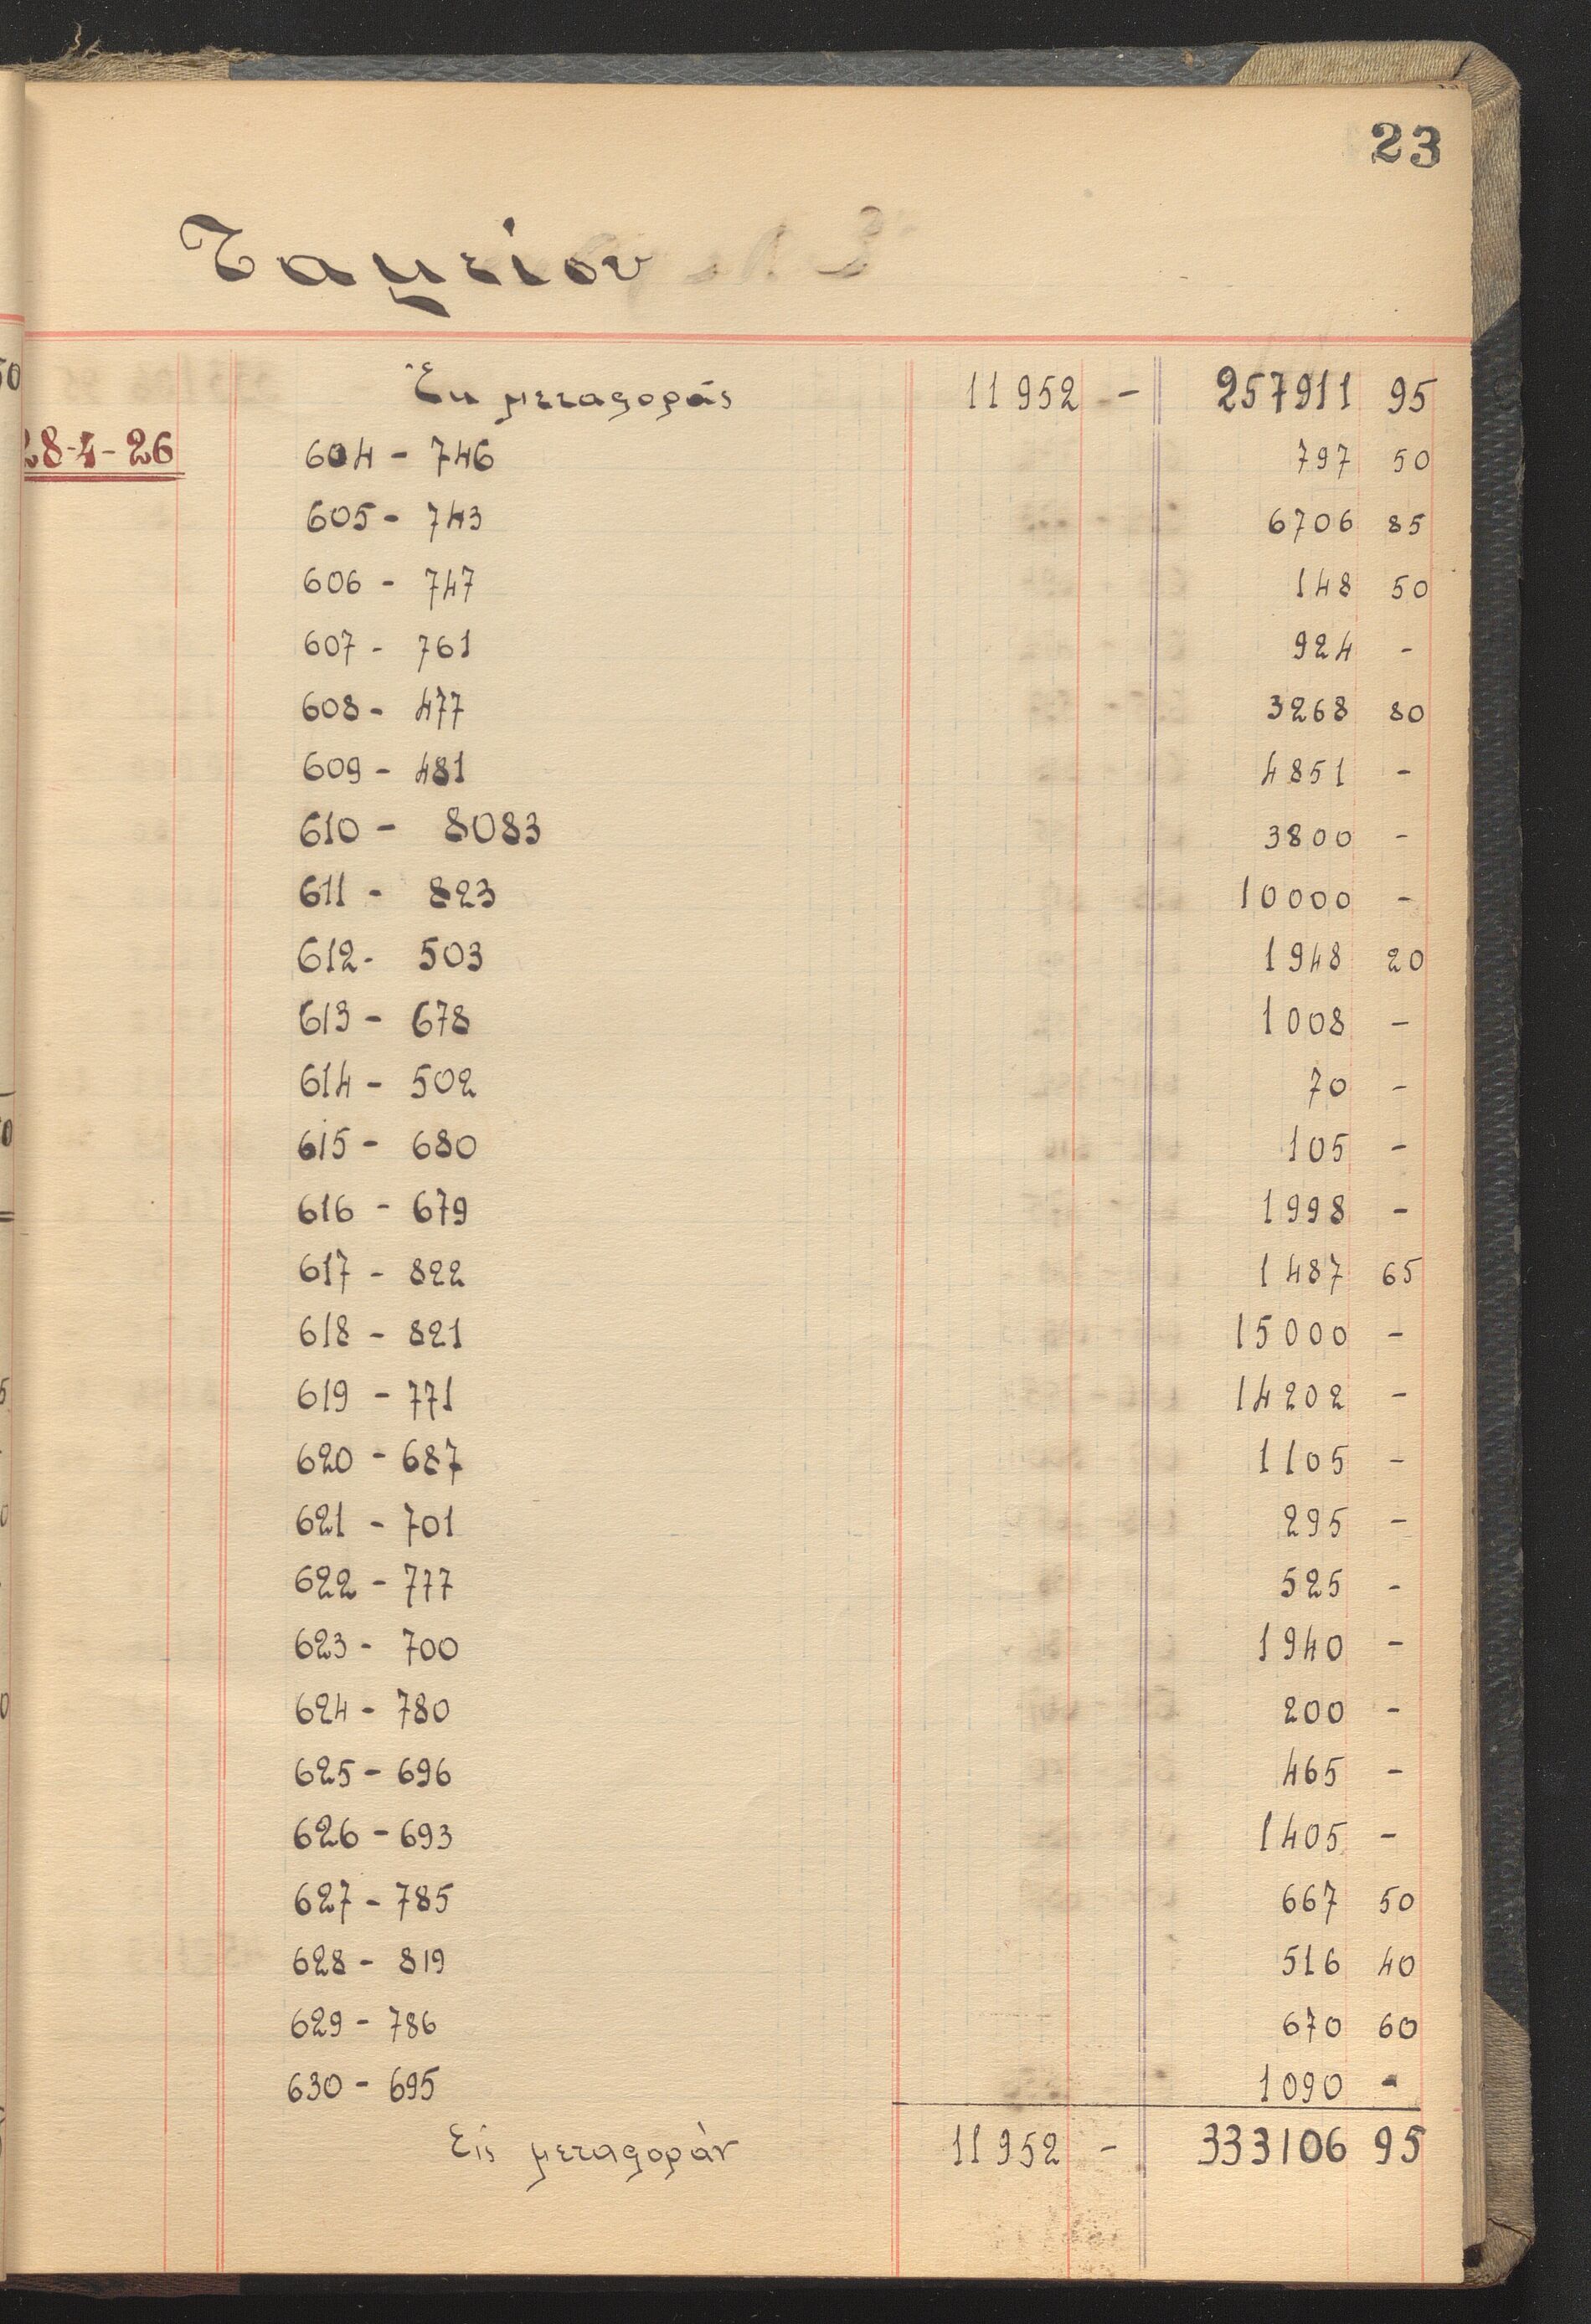 23
Ταμείου
Ἐκ μεταφορᾶς 11952 - 257911 95
28-4-26 604 - 746 797 50
605 - 743 6706 85
606 - 747 148 50
607 - 761 924 -
608 - 477 3268 80
609 - 481 4851 -
610 - 8083 3800 -
611 - 823 10000 -
612 - 503 1948 20
613 - 678 1008 -
614 - 502 70 -
615 - 680 105 -
616 - 679 1998 -
617 - 822 1487 65
618 - 821 15000 -
619 - 771 14202 -
620 - 687 1105 -
621 - 701 295 -
622 - 777 525 -
623 - 700 1940 -
624 - 780 200 -
625 - 696 465 -
626 - 693 1405 -
627 - 785 667 50
628 - 819 516 40
629 - 786 670 60
630 - 695 1090 -
Εἰς μεταφοράν 11952 - 333106 95